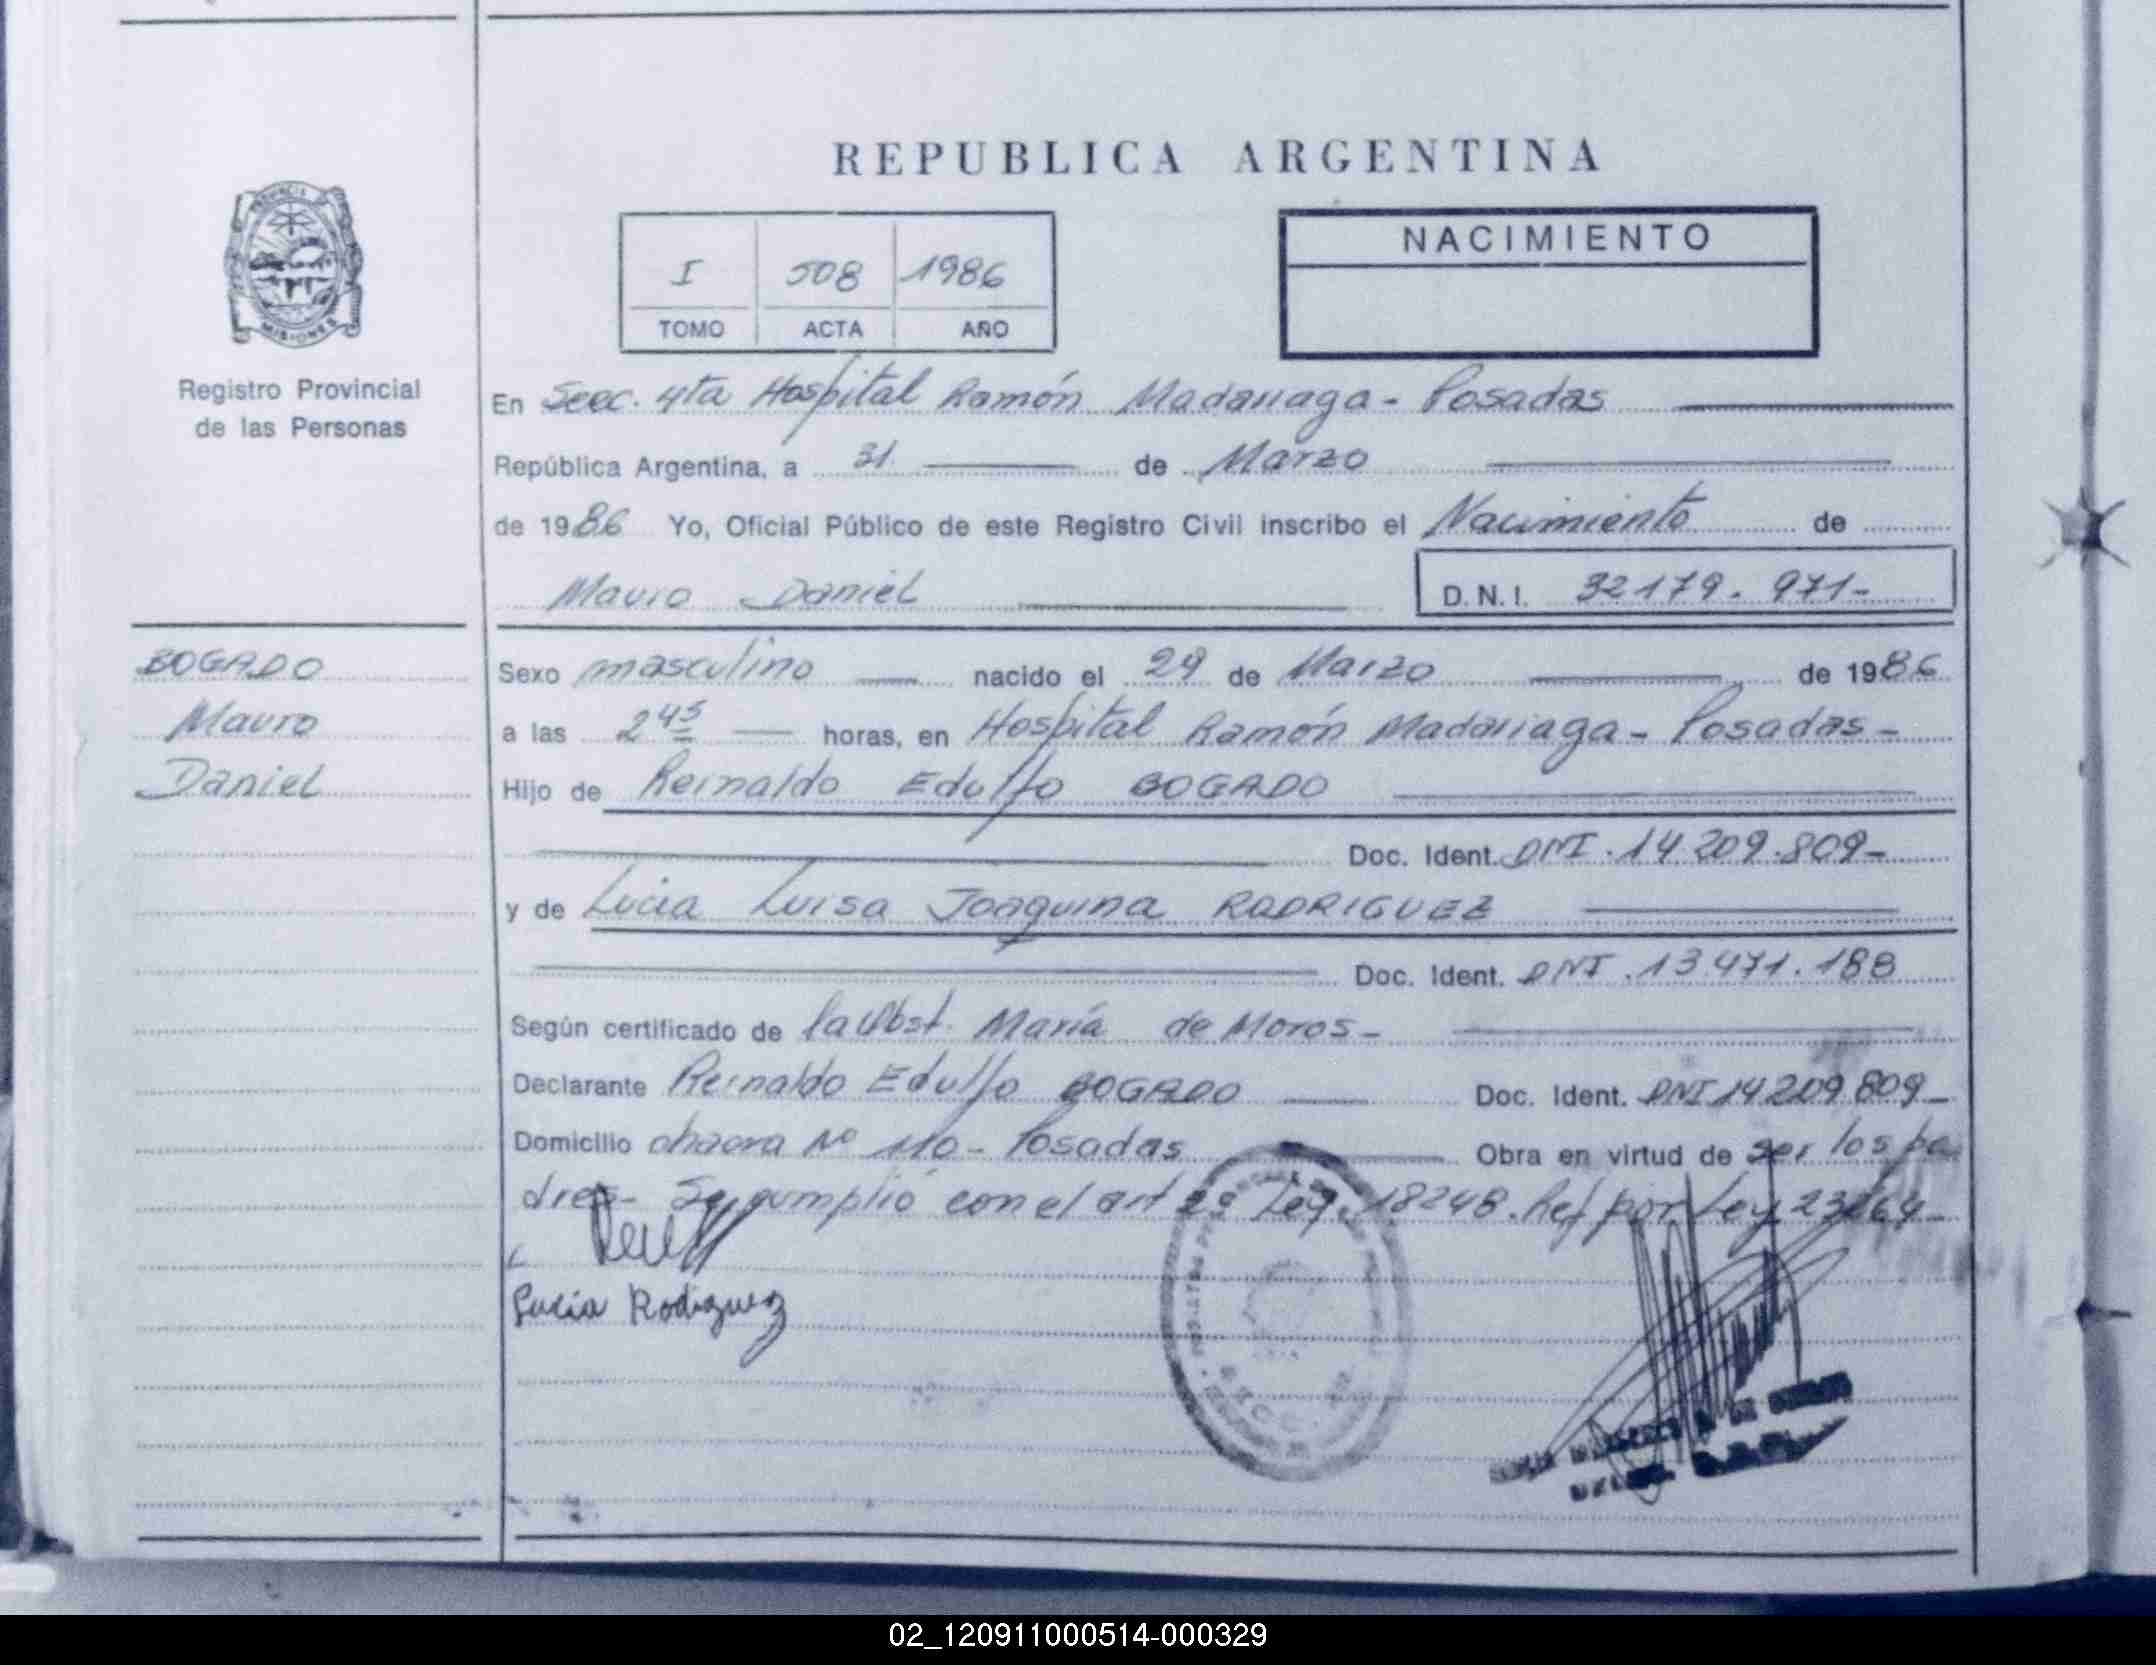 REPUBLICA ARGENTINA
PROVINCIA
MISIONES
Registro Provincial
de las Personas
I 508 1986
TOMO ACTA AÑO
NACIMIENTO
En Secc. 4ta Hospital Ramón Madariaga - Posadas
República Argentina, a 31 de Marzo
de 1986 Yo, Oficial Público de este Registro Civil inscribo el Nacimiento de
Mauro Daniel D.N.I. 32179.971-
BOGADO
Mauro
Daniel
Sexo masculino nacido el 29 de Marzo de 1986
a las 2 45 horas, en Hospital Ramón Madariaga - Posadas -
Hijo de Reinaldo Edulfo BOGADO
Doc. Ident. DNI. 14.209.809-
y de Lucia Luisa Joaquina RODRIGUEZ
Doc. Ident. DNI. 13.471.188
Según certificado de la Obst. María de Moros -
Declarante Reinaldo Edulfo BOGADO Doc. Ident. DNI 14209.809-
Domicilio chacra Nº 110 - Posadas Obra en virtud de ser los pa
dres - Se cumplió con el art Ley 18248. Ref por Ley 23264-
Lucia Rodriguez
02_120911000514-000329